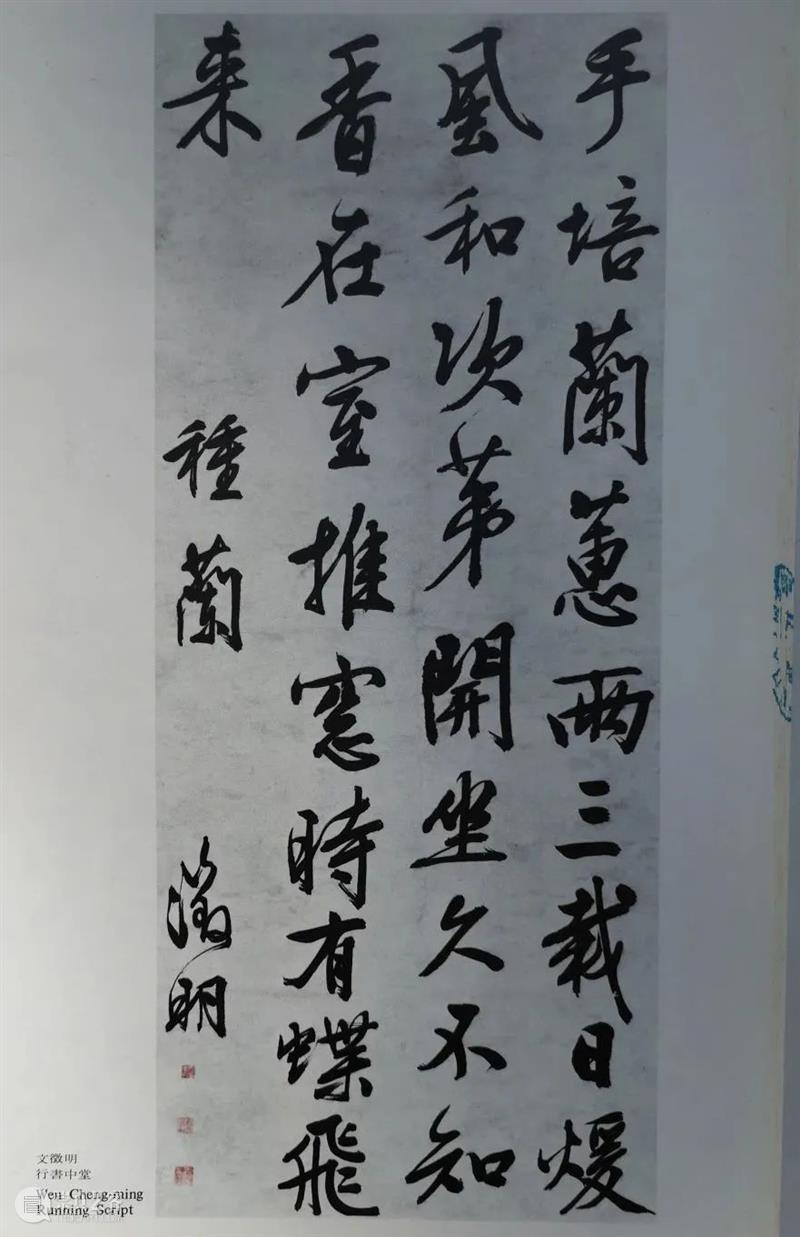 手培蘭蕙兩三載日煖
風和次第開坐久不知
香在室推窻時有蝶飛
来
種蘭
徵明
文徵明
行書中堂
Wen Cheng-ming
Running Script